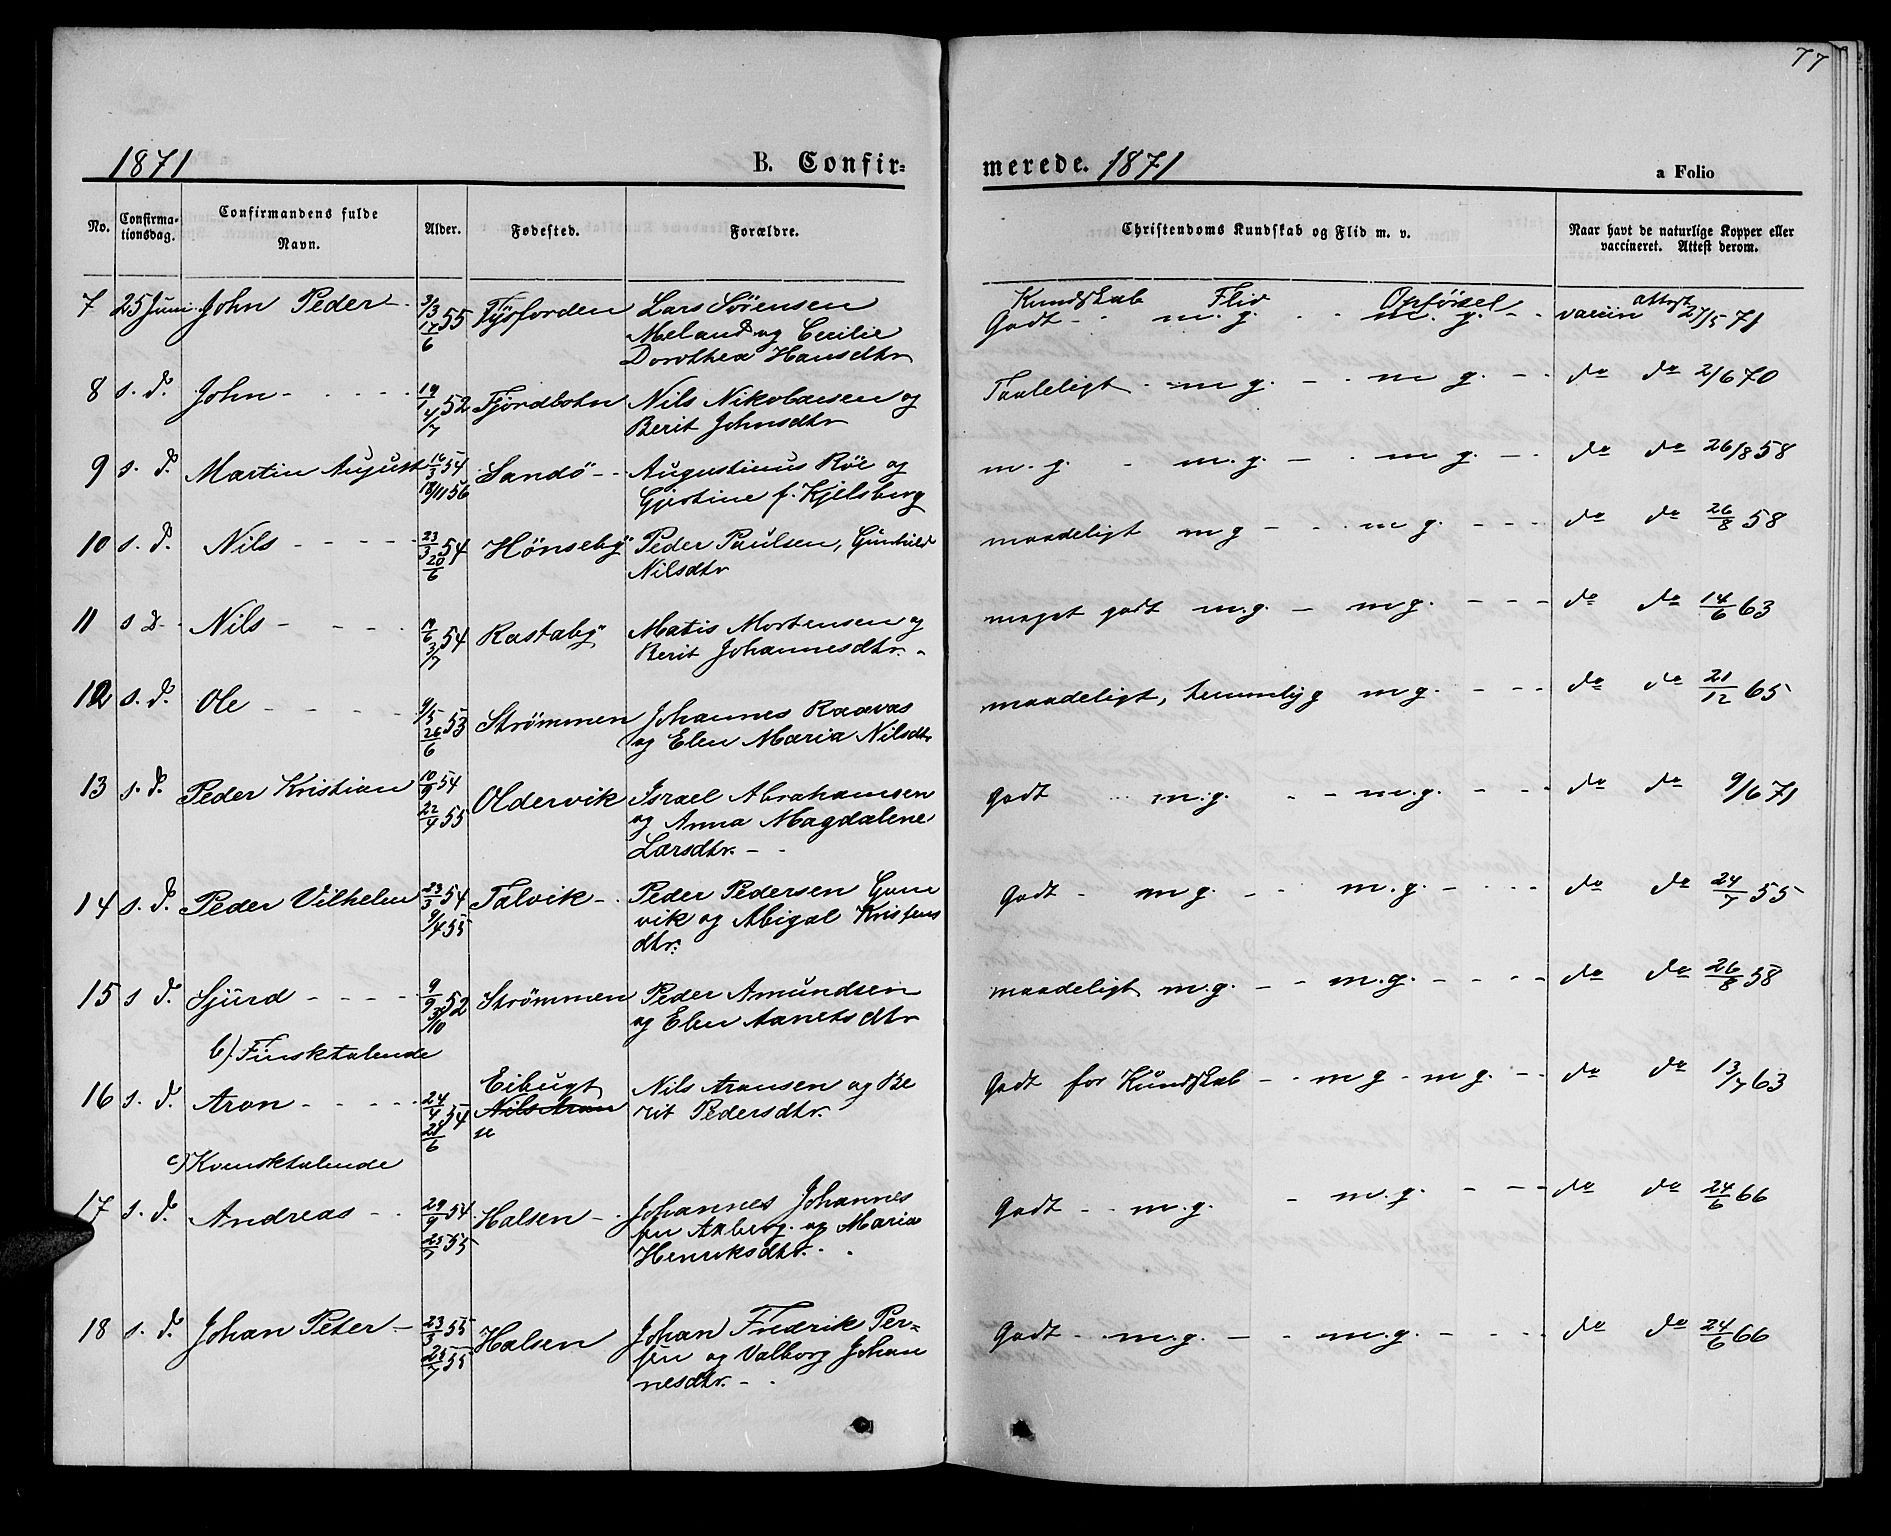 77
1871 B. Confir=
merede. 1871 a Folio
No. Confirma-tionsdag. Confirmandens fulde Navn. Alder. Fødested. Forældre. Christendoms Kundskab og Flid m. v. Naar havt de naturlige Kopper eller vaccineret. Attest derom.
Kundskab Flid Opførsel
7 25 Juni John Peder - 3/3 17/6 55 Lars Sørensen Godt - m. g. - m. g. - vaccin attest 27/5 71
Meland og Cecilie
Dorothea Hansdtr
8 s. d. John - 19/1 4/7 52 Fjordbotn Nils Nikolaisen og Taaleligt - m g. - m g. - do do 2/6 70
Berit Johnsdtr
9 s. d. Martin August 16/3 54 Sandö - Augustinus Röe og m. g. - m. g. - m g. - do do 26/8 58
18/11 56 Gjertine f. Kjelsberg
10 s. d. Nils - 23/3 20/6 54 Hönseby Peder Paulsen, Gunhild maadeligt m g - m g. - do do 26/8 58
Nilsdtr
11 s d. Nils - 19/6 3/7 54 Rastaby Matis Mortensen og meget godt m.g. - m g. - do do 14/6 63
Berit Johannesdtr. -
12 s. d. Ole - 9/5 26/6 53 Strömmen Johannes Raavas maadeligt, temmelig g m g. - do do 21/12 65
og Elen Maria Nilsdtr
13 s. d. Peder Kristian 10/9 54 Oldervik Israel Abrahamsen Godt m.g. - m.g. - do do 9/6 71
22/4 55 og Anna Magdalene
Larsdtr. -
14 s. d. Peder Vilhelm 23/3 54 Talvik - Peder Pedersen Gam Godt - m g. - m. g. - do do 24/7 55
9/4 55 vik og Abigal Kristens
dtr.
15 s d. Sjurd - 9/9 3/10 52 Strömmen Peder Amundsen maadeligt m.g. - m.g. - do do 26/8 58
og Elen Aanetsdtr
b) Finsktalende
16 s. d. Aron - 24/4 24/6 54 Eibugt Nils Aronsen og Be Godt for Kundskab - m g - m g. - do do 13/7 63
Nils Aron rit Pedersdtr.
se
c) Kvensktalende
17 s. d. Andreas - 29/9 54 Halsen - Johannes Johannes Godt - m. g. - m. g. - do do 24/6 66
25/7 55 sen Aaberg. og Maria
Henriksdtr.
18 s. d. Johan Peter - 23/3 55 Halsen Johan Fredrik Per= Godt - m.g. - m.g. - do do 24/6 66
25/7 55 sen og Valborg Johan
nesdtr. -